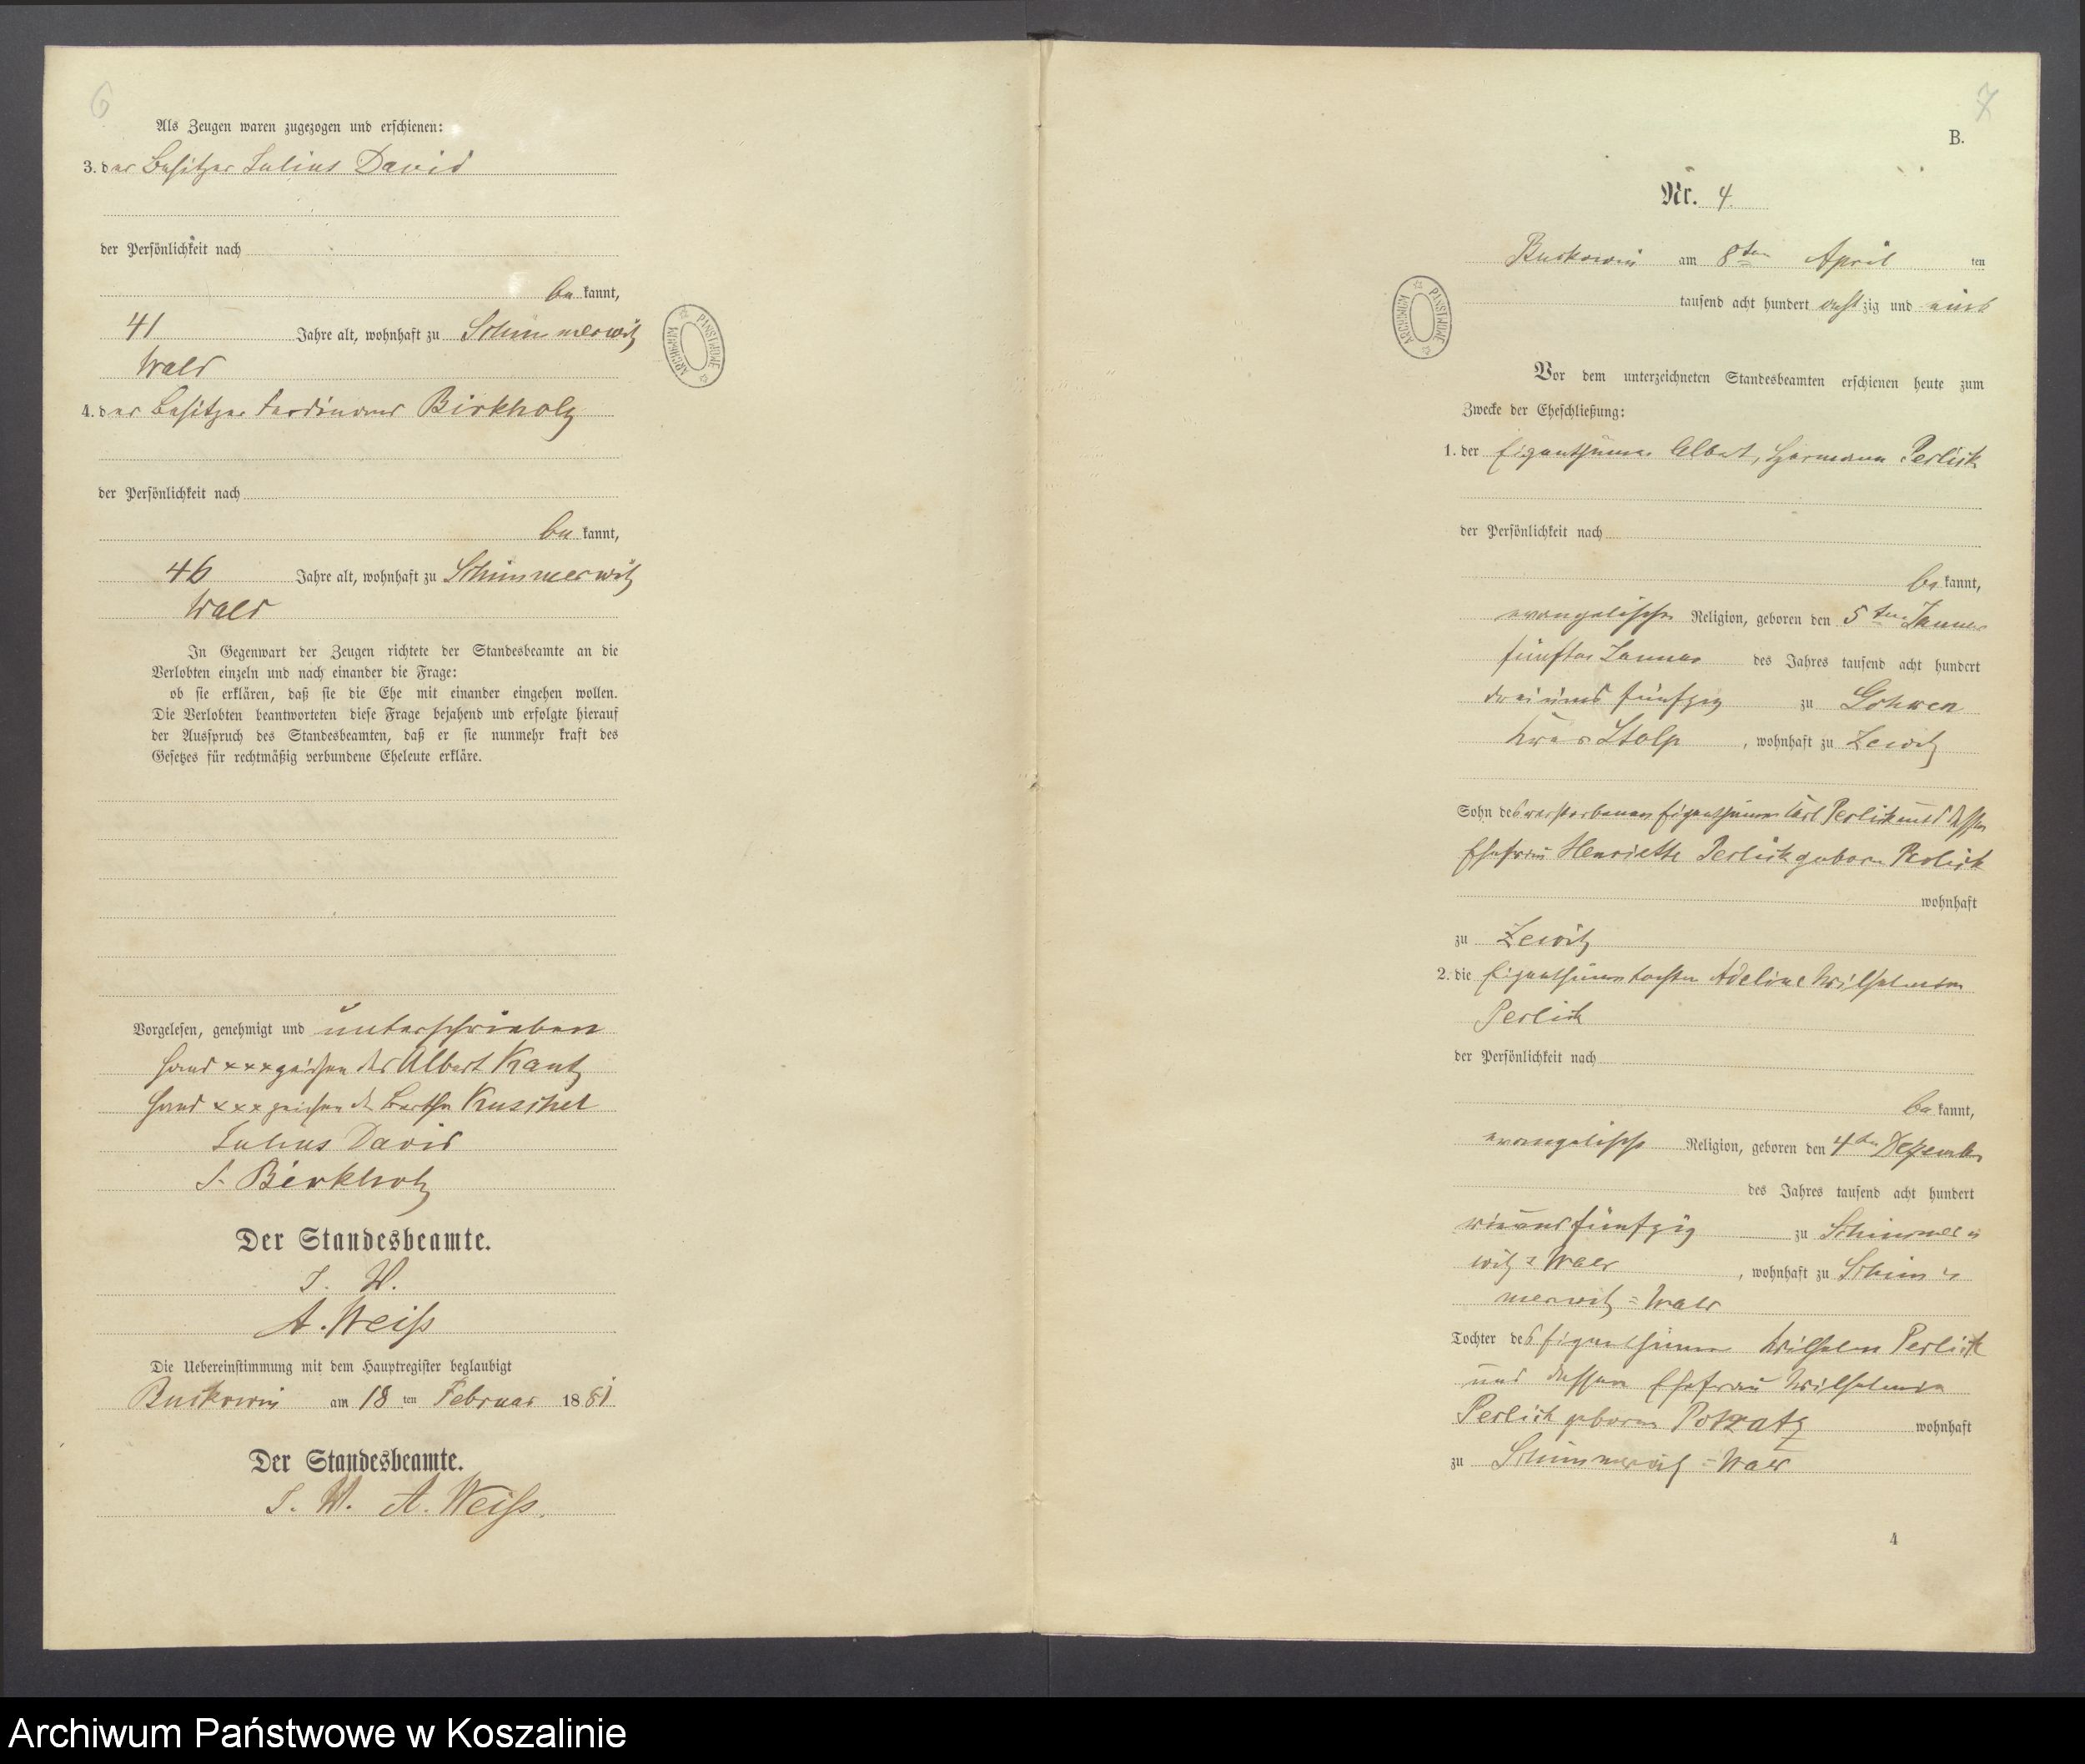 6
Als Zeugen waren zugezogen und erschienen:
3. der Besitzer Julius David
der Persönlichkeit nach
be kannt,
41 Jahre alt, wohnhaft zu Schimmerwitz
Wald
4. der Besitzer Ferdinand Birkholz
der Persönlichkeit nach
be kannt,
46 Jahre alt, wohnhaft zu Schimmerwitz
Wald
In Gegenwart der Zeugen richtete der Standesbeamte an die
Verlobten einzeln und nach einander die Frage:
ob sie erklären, daß sie die Ehe mit einander eingehen wollen.
Die Verlobten beantworteten diese Frage bejahend und erfolgte hierauf
der Ausspruch des Standesbeamten, daß er sie nunmehr kraft des
Gesetzes für rechtmäßig verbundene Eheleute erkläre.
Vorgelesen, genehmigt und unterschrieben
Hand xxx zeichen des Albert Kautz
Hand xxx zeichen der Bertha Kuschel
Julius David
F. Birkholz
Der Standesbeamte.
I. V.
A. Weiß
Die Uebereinstimmung mit dem Hauptregister beglaubigt
Buckowin am 18 ten Februar 1881
Der Standesbeamte.
I. V. A. Weiß.
ARCHIWUM PAŃSTWOWE
7
B.
Nr. 4.
Buckowin am 8ten April ten
tausend acht hundert achtzig und eins
ARCHIWUM PAŃSTWOWE
Vor dem unterzeichneten Standesbeamten erschienen heute zum
Zwecke der Eheschließung:
1. der Eigenthümer Albert, Hermann Perlick
der Persönlichkeit nach
be kannt,
evangelischer Religion, geboren den 5ten Januar
fünfter Januar des Jahres tausend acht hundert
dreiund fünfzig zu Gohren
Kreis Stolp, wohnhaft zu Zewitz
Sohn des verstorbenen Eigenthümer Carl Perlick und dessen
Ehefrau Henriette Perlick geborne Perlick
wohnhaft
zu Zewitz
2. die Eigenthümertochter Adeline Wilhelmine
Perlick
der Persönlichkeit nach
be kannt,
evangelische Religion, geboren den 4ten Dezember
des Jahres tausend acht hundert
vierundfünfzig zu Schimmer=
witz=Wald, wohnhaft zu Schim=
merwitz=Wald
Tochter des Eigenthümer Wilhelm Perlick
und dessen Ehefrau Wilhelmine
Perlick geborne Potratz wohnhaft
zu Schimmerwitz=Wald
4
Archiwum Państwowe w Koszalinie